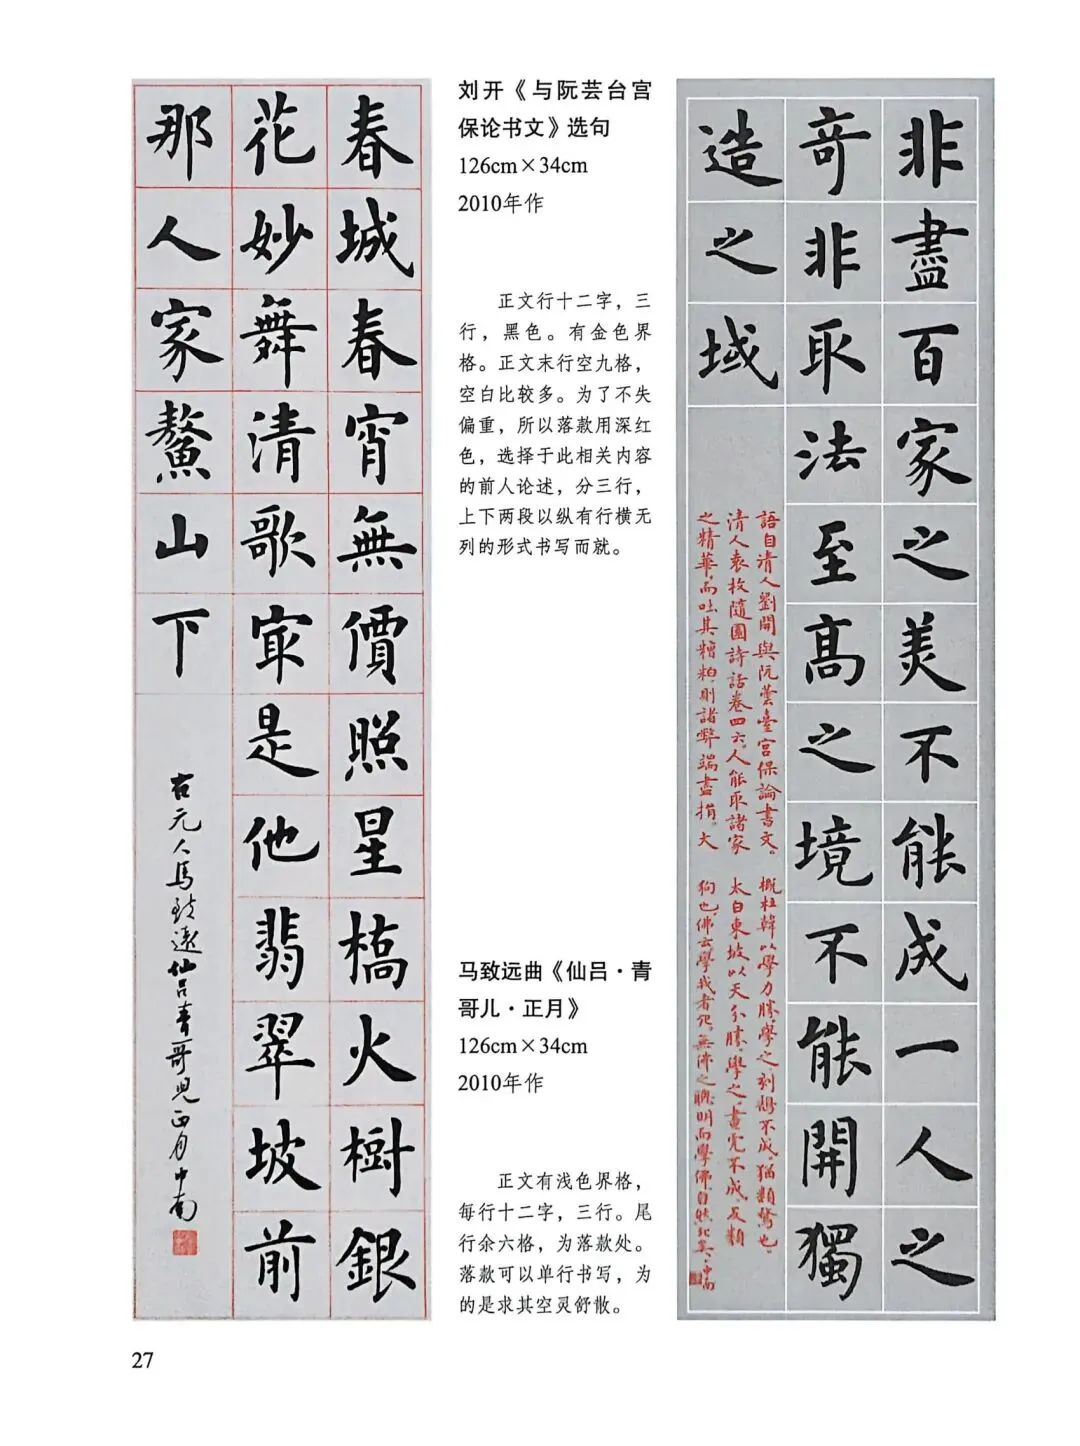 春城春宵無價照星橋火樹銀
花妙舞清歌冣是他翡翠坡前
那人家鰲山下
右元人馬致遠仙呂青哥兒正月中南
刘开《与阮芸台宫
保论书文》选句
126cm×34cm
2010年作
正文行十二字，三
行，黑色。有金色界
格。正文末行空九格，
空白比较多。为了不失
偏重，所以落款用深红
色，选择于此相关内容
的前人论述，分三行，
上下两段以纵有行横无
列的形式书写而就。
马致远曲《仙吕·青
哥儿·正月》
126cm×34cm
2010年作
正文有浅色界格，
每行十二字，三行。尾
行余六格，为落款处。
落款可以单行书写，为
的是求其空灵舒散。
非盡百家之美不能成一人之
奇非取法至高之境不能開獨
造之域
語自清人劉開與阮蕓臺宮保論書文。
清人袁枚隨園詩話卷四六。人能取諸家
之精華，而吐其糟粕，則諸弊端盡捐。大
概杜韓以學力勝，學之，刻鵠不成，猶類鶩也。
太白東坡以天分勝，學之，畫虎不成，反類
狗也。佛云學我者死。無佛之聰明而學佛自然死矣。中南
27